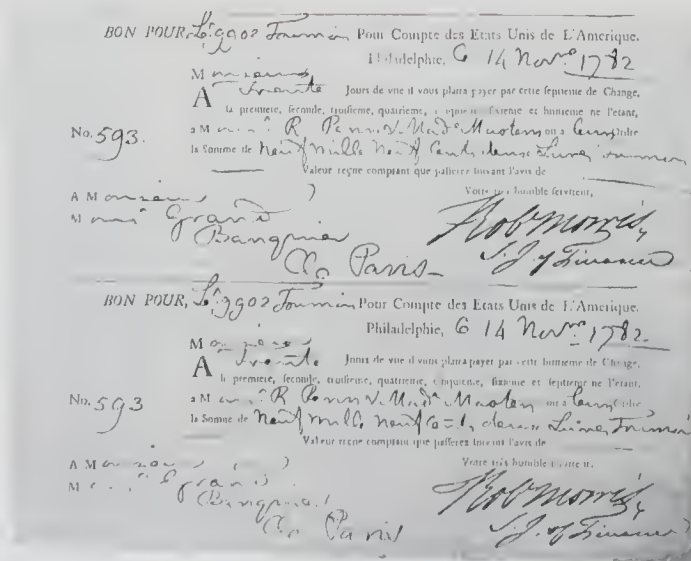 BON POUR, Ls. 9902 Tournois Pour Compte des Etats Unis de L'Amerique.
Philadelphie, 14 Novre 1782
Monsieur
A Trente Jours de vue il vous plaira payer par cette septieme de Change,
la premiere, seconde, troisieme, quatrieme, cinquieme, sixieme et huitieme ne l'etant,
No. 593. a R Penn ou a leur Ordre
la Somme de Neuf mille Neuf Cents deux Livres Tournois
Valeur reçue comptant que passerez suivant l'avis de
Votre très humble serviteur,
A Monsieur
Monsr. Grand
Banquier
Paris
Robt Morris
S. J. of Finance
BON POUR, Ls. 9902 Tournois Pour Compte des Etats Unis de L'Amerique.
Philadelphie, 14 Novre 1782.
Monsieur
A Trente Jours de vue il vous plaira payer par cette huitieme de Change,
la premiere, seconde, troisieme, quatrieme, cinquieme, sixieme et septieme ne l'etant,
No. 593 a R Penn ou a leur Ordre,
la Somme de Neuf mille Neuf Cents deux Livres Tournois
Valeur reçue comptant que passerez suivant l'avis de
Votre très humble serviteur,
A Monsieur
Grand
Banquier
Paris
Robt Morris
S. J. of Finance